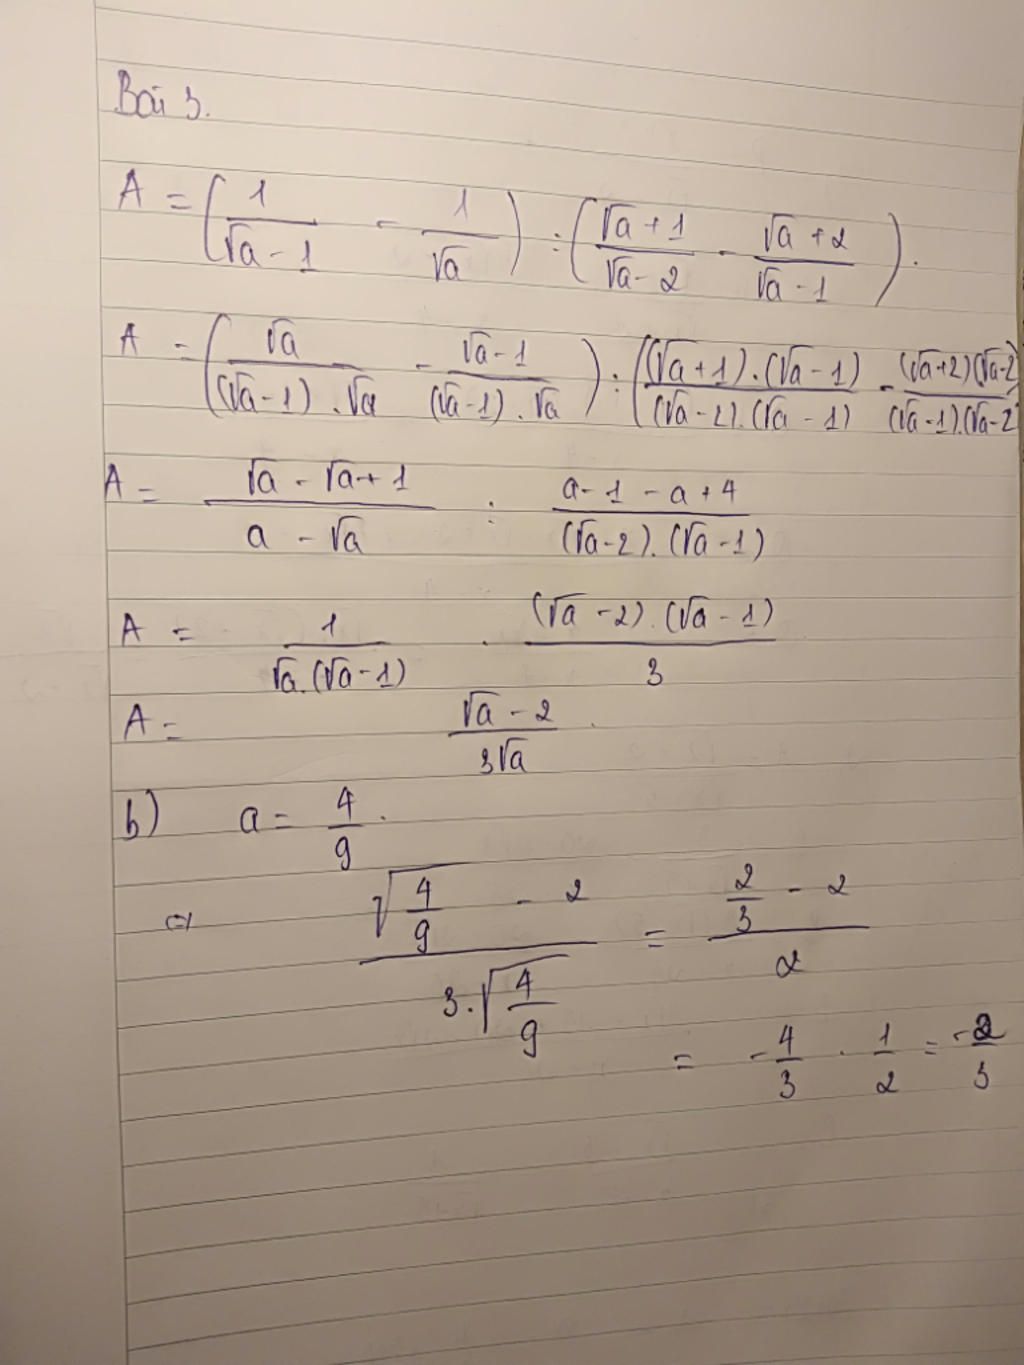 Bài 3.
A = (1/(√a - 1) - 1/√a) : ((√a + 1)/(√a - 2) - (√a + 2)/(√a - 1)).
A = (√a/((√a - 1).√a) - (√a - 1)/((√a - 1).√a)) : ((√a + 1).(√a - 1)/((√a - 2).(√a - 1)) - (√a + 2)(√a - 2)/((√a - 1).(√a - 2
A = (√a - √a + 1)/(a - √a) : (a - 1 - a + 4)/((√a - 2).(√a - 1))
A = 1/(√a.(√a - 1)) . ((√a - 2).(√a - 1))/3
A = (√a - 2)/(3√a) .
b) a = 4/9 .
⇒ (√(4/9) - 2)/(3.√(4/9)) = (2/3 - 2)/2
= -4/3 . 1/2 = -2/3